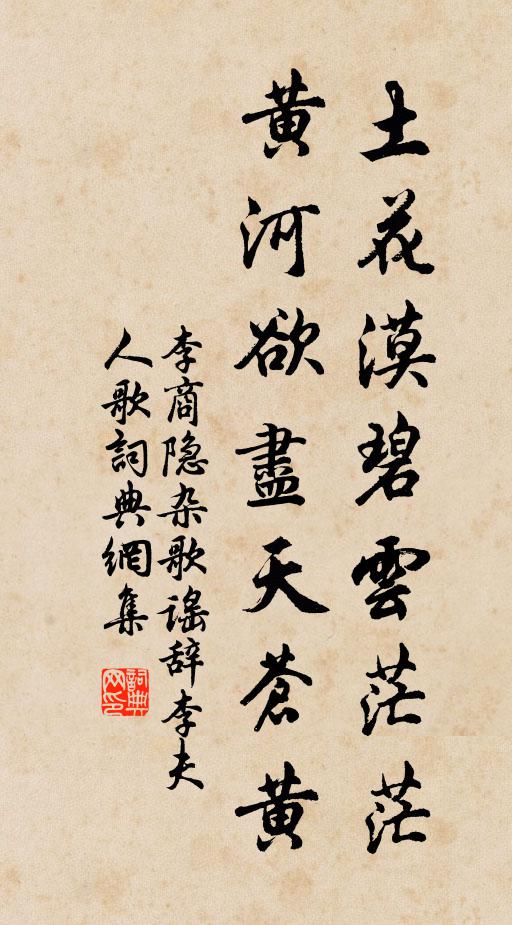 土花漠碧雲茫茫
黄河欲盡天蒼黄
李商隐杂歌谣辞李夫
人歌詞典網集
詞典
网印